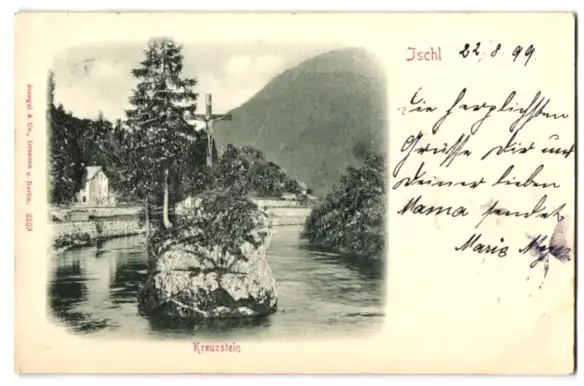 Ischl 22/8. 99
Die herzlichsten
Grüsse Dir und
Deiner lieben
Mama sendet
Marie
Stengel & Co., Dresden u. Berlin. 2509
Kreuzstein